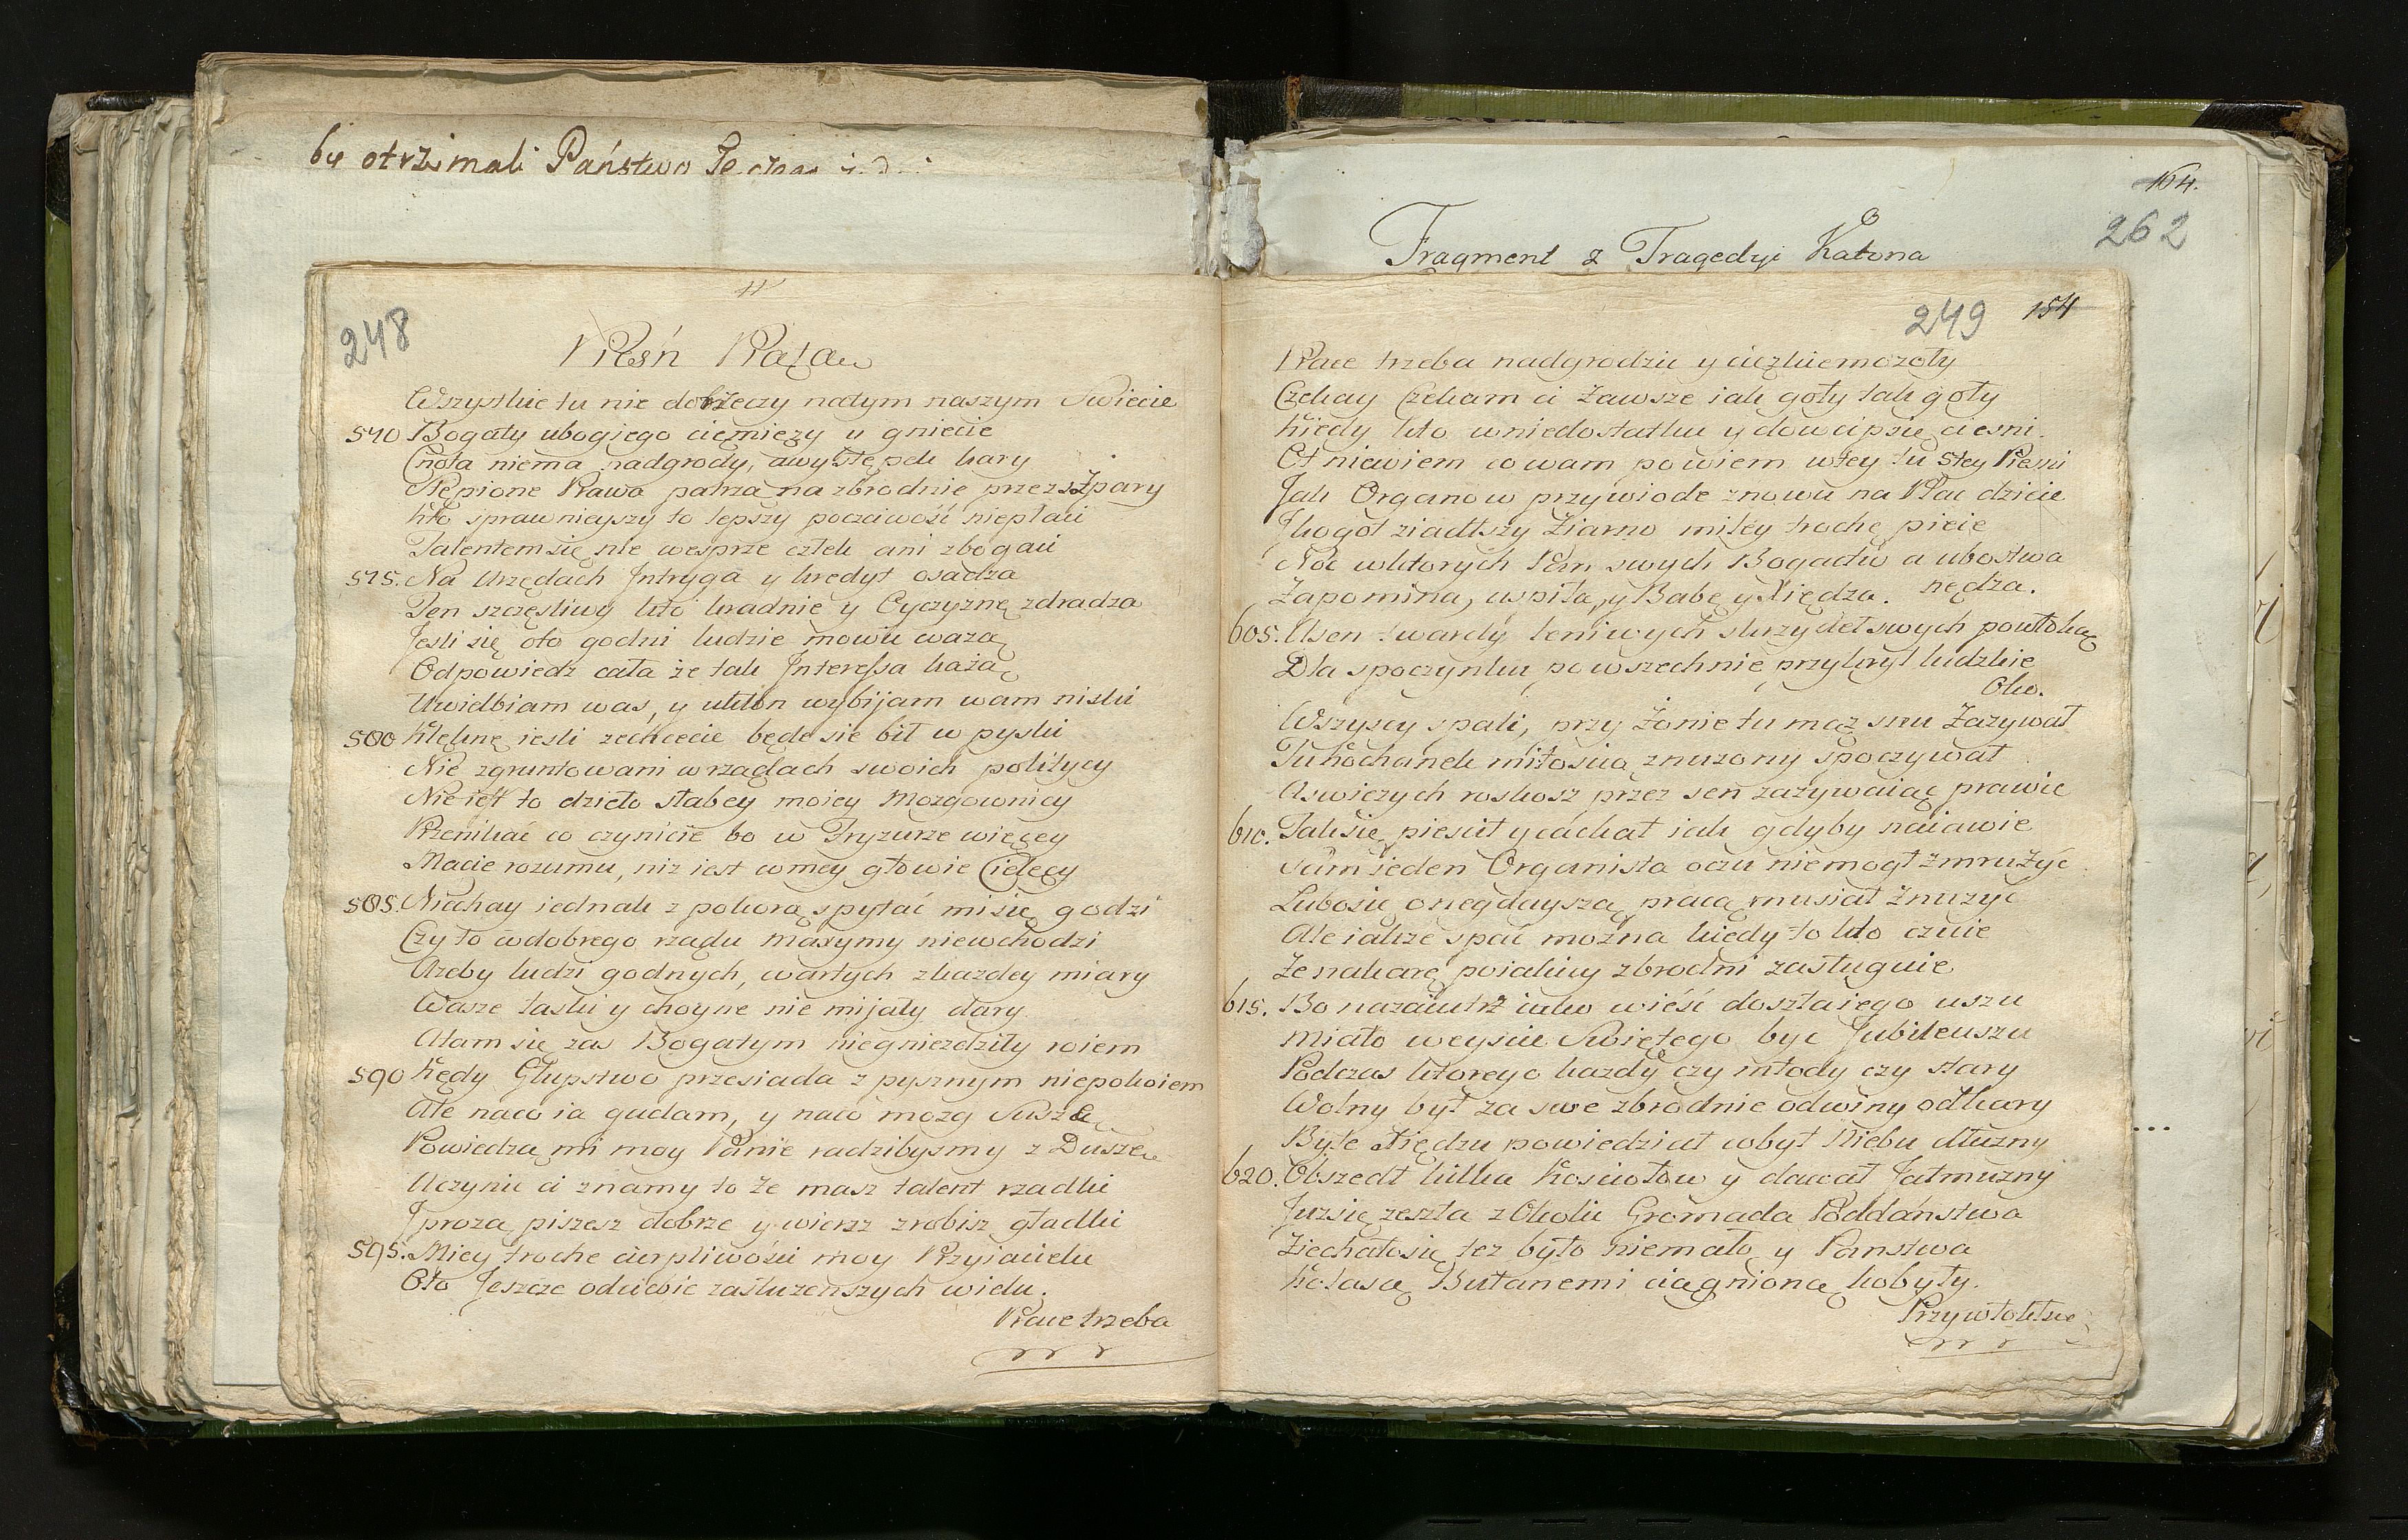 by otrzimali Państwo
248
Pieśń Piąta
Wszystkie tu nie do Rzeczy natym naszym Swiecie
570 Bogaty ubogiego cięmięzy u gniecie
Cnota niema nadgrody, awystępek kary
Slępione Prawa patrzą na zbrodnie przez szpary
Kto sprawnieyszy to lepszy poczciwość niepłaci
Talentem się nie wesprze człek ani zbogaci
575. Na Urzędach Intryga y kredyt osadza
Ten szczęsliwy kto kradnie y Oyczyznę zdradza
Jesli się oto godni ludzie mowić ważą
Odpowiedz cała że tak Interessa każą
Uwielbiam was, y ukłon wybijam wam niski
580 Klęknę iesli zechcecie będe sie bił w pyski
Nie zgruntowani w rządach swoich politycy
Nie iest to dzieło słabey moiey Mozgownicy
Przenikać co czynicie bo w Fryzurze więcey
Macie rozumu, niz iest w mey głowie Cielęcy
585. Niechay iednak z pokorą spytać mi się godzi
Czy to wdobrego rządu Maxymy niewchodzi
Azeby ludzi godnych, wartych zkazdey miary
Wasze łaski y choyne nie mijały dary
A tam się zas Bogatym niegniezdziły roiem
590 Kędy Głupstwo przesiada z pysznym niepokoiem
Ale naco ia gadam, y naco mozg Suszę
Powiedzą mi moy Panie radzibysmy z Duszę
Uczynić ci znamy to że masz talent rzadki
I prozą piszesz dobrze y wiersz zrobisz gładki
595. Miey troche cierpliwości moy Przyiacielu
Oto Jeszcze odciebie zasłuzenszych wielu.
Prace trzeba
164.
262
Fragment z Tragedyi Katona
249 154
Prace trzeba nadgrodzić y cięzkie mozoły
Czekay Czekam ci Zawsze iak goły tak goły
Kiedy kto wniedostatku y dowcip się ciesni.
Ot niewiem co wam powiem wtey tu Stey Piesni
Jak Organow przywiode znowu na Plac dzicie
I kogot ziadłszy Ziarno miley trochę pieie
Noc wktorych Pan swych Bogactw a ubostwa nędza.
Zapomina, uspiła, y Babę y Xiędza.
605. A sen twardy leniwych skrzydeł swych powłoką
Dla spoczynku powszechnie przykrył ludzkie Oko.
Wszyscy spali, przy Zonie tu mąż snu Zazywał
Tu Kochanek miłoscią znuzony spoczywał
A swiezych roskosz przez sen zażywaiąc prawie
610. Tak się piescił y cackał iak gdyby naiawie
Sam ieden Organista oczu niemogł zmrużyć
Lubo się onegdayszą pracą musiał Znuzyć
Ale iakze spać można kiedy to kto czuie
Ze na karę poiakiey zbrodni zasługuie
615. Bo nazaiutrz iako wieść doszła iego uszu
Miało weyscie Swiętego być Jubileuszu
Podczas ktorego kazdy czy młody czy stary
Wolny był za swe zbrodnie odwiny odkary
Byle Xiędzu powiedział cobył Niebu dłuzny
620. Obszedł kilka Kosciołow y dawał Jałmuzny
Juz się zeszła z Okolic Gromada Poddaństwa
Ziechało się tez było niemało y Panstwa
Kolasą Bułanemi ciągnioną kobyły.
Przywlokł się